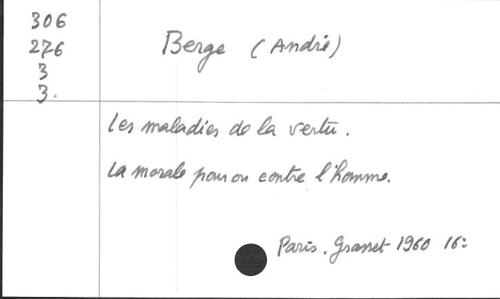 306
276
3
3.
Berge (André)
Les maladies de la vertu.
La morale pour ou contre l'homme.
Paris. Grasset 1960 16: